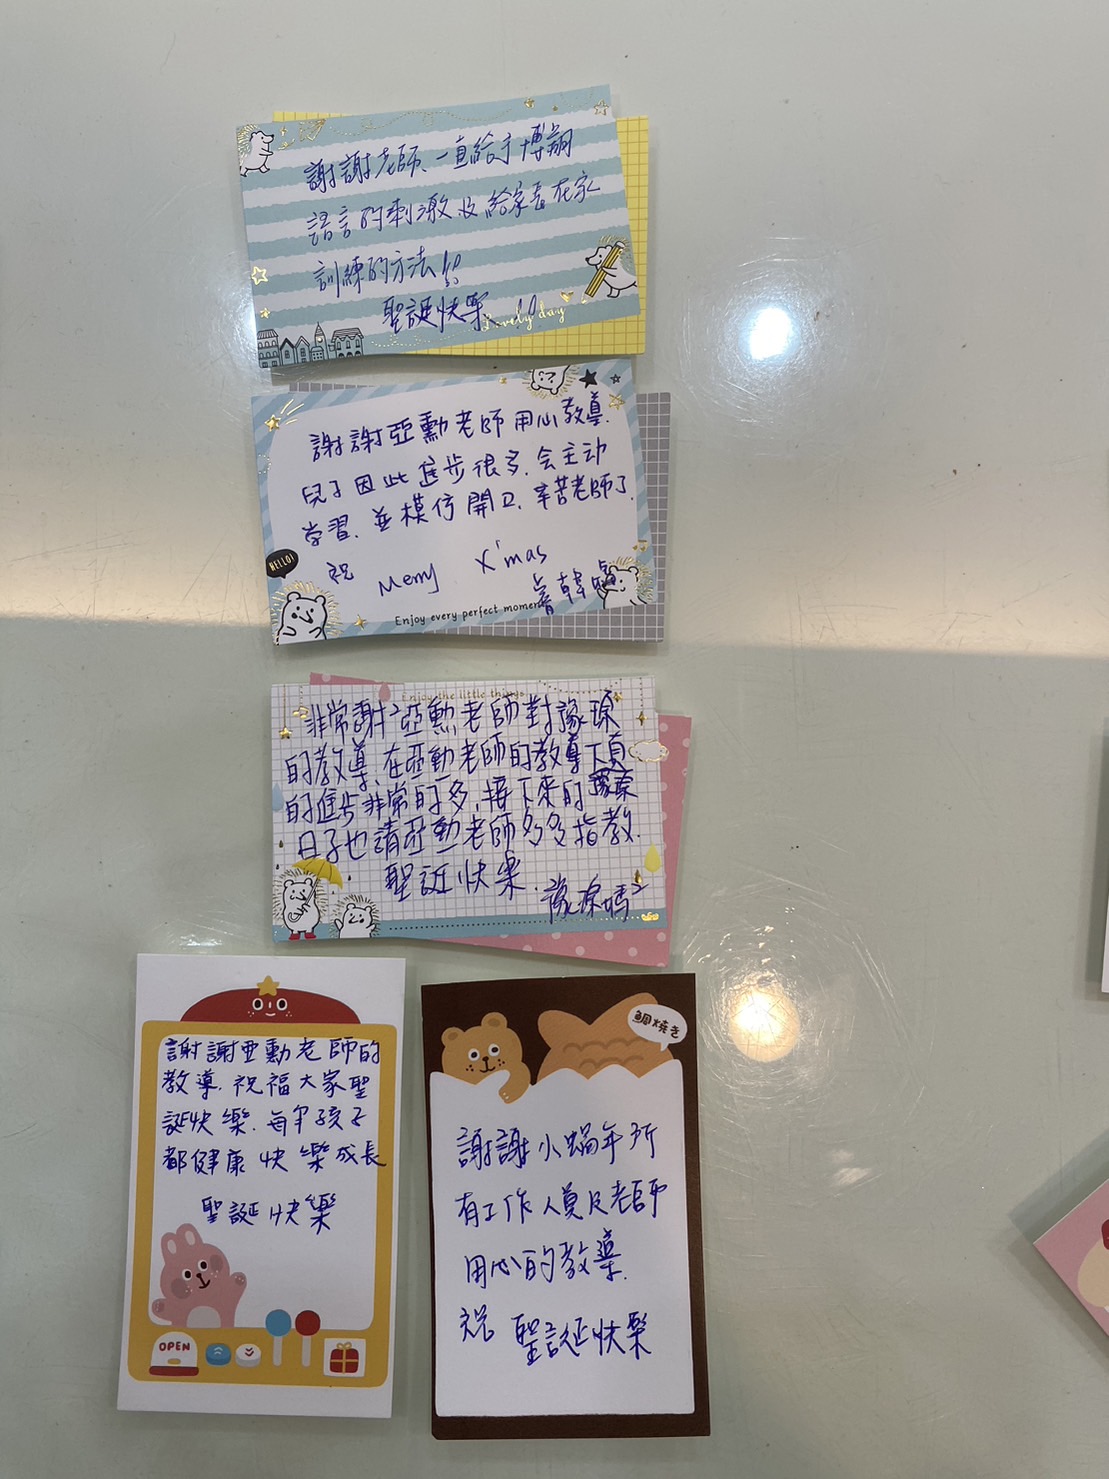 謝謝老師、一直給予博翔
語言的刺激及給家長在家
訓練的方法!!
聖誕快樂!!
Lovely day
謝謝亞勳老師用心教導.
兒子因此進步很多.会主动
学習.並模仿開口.辛苦老師了.
祝 Merry X'mas
HELLO!
Enjoy every perfect moment
Enjoy the little things
非常謝²亞勳老師對豫琛
的教導、在亞勳老師的教導下
豫琛
的進步非常的多,接下來的
日子也請亞勳老師多多指教.
聖誕快樂.
豫琛媽²
謝謝亞勳老師的
教導.祝福大家聖
誕快樂.每个孩子
都健康快樂成長
聖誕快樂
OPEN
鯛焼き
謝謝小蝸牛所
有工作人員及老師
用心的教導.
祝 聖誕快樂